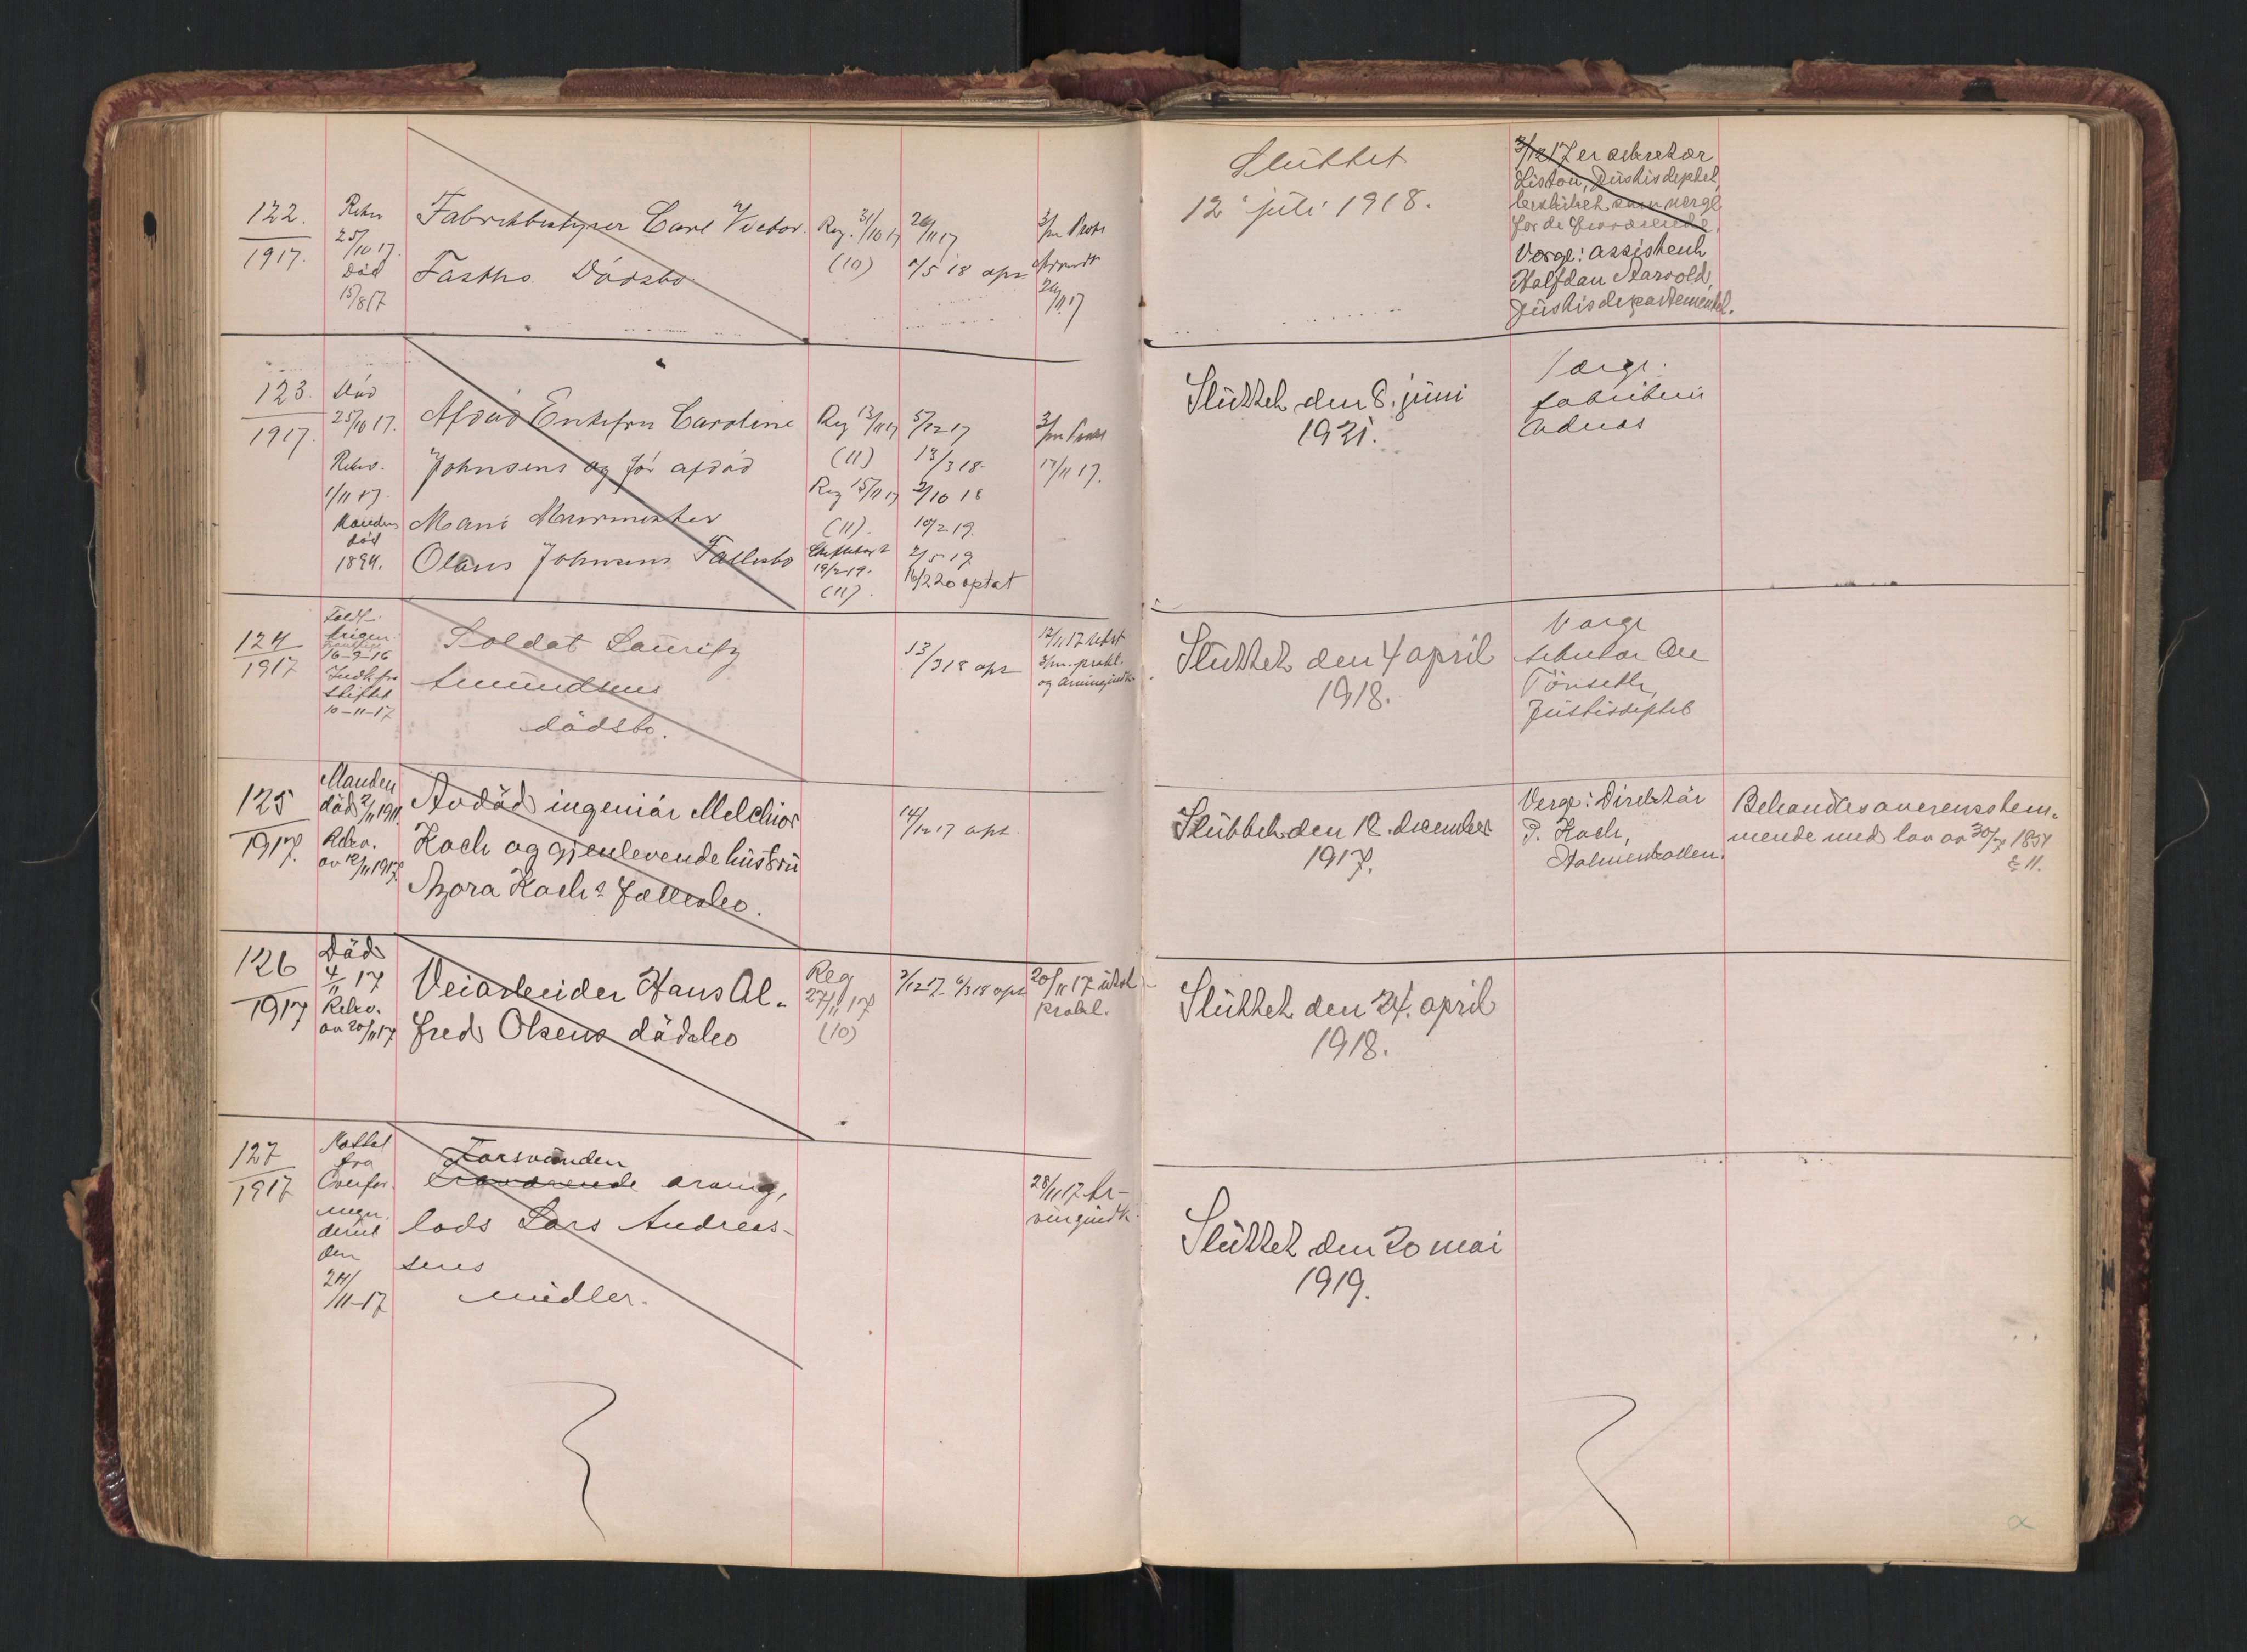 122.
1917.
Rekv
25/10 17.
Död
15/8 17
Fabrikbestyrer Carl Victor
Fasths Dödsbo
Reg. 31/10 17
(10)
26/11 17
/5 18 ops
3/m Prokl
26/11 17
Sluttet
12 juli 1918.
3/12 17 er sekretær
Justisdeptet,
beskikket som verge
for de fraværende.
Verge: assistent
Halfdan Aarvold,
Justisdepartementet.
123.
1917.
Död
25/10 17.
Rekv.
1/11 17.
Manden
död
1894.
Afdöd Enkefru Caroline
Johnsens og før afdöd
Mand Murmester
Olaus Johnsens Fællesbo
Reg 13/11 17
(11)
Reg 15/11 17
(11).
19/2 19.
(11).
5/12 17
13/3 18
2/10 18
10/2 19.
2/5 19
16/2 20 optat
3/m Prokl
17/11 17.
Sluttet den 8. juni
1921.
Verge:
124
1917
16-9-16
Skiftet
10-11-17
Soldat Lauritz
Amundsens
dödsbo.
13/3 18 ops
12/11 17 utst
3/m. prokl.
og arvingindk.
Sluttet den 4 april
1918.
Verge
sekretær
Tönseth,
Justisdeptet
125
1917.
Manden
död 2/11 1911
Rekv.
av 12/11 1917
Avdöd ingeniör Melchior
Koch og gjenlevende hustru
Thora Koch's fællesbo.
14/12 17 opt
Sluttet den 18. december
1917.
Verge: Direktör
P. Koch,
Holmenkollen.
Behandles overensstem-
mende med lov av 30/7 1851
§ 11.
126
1917
Död
4/11 17
Rekv.
av 20/11 17
Veiarbeider Hans Al-
fred Olsens dödsbo
Reg
27/11 17
(10)
3/12 17 6/3 18 opt
20/11 17 utst
prokl.
Sluttet den 24. april
1918.
127
1917
Mottat
fra
Overfor-
mynderiet
den
24/11-17
Forsvunden
fraværende arving,
lods Lars Andreas-
sens
midler.
28/11 17 Ar-
vingindk.
Sluttet den 20 mai
1919.